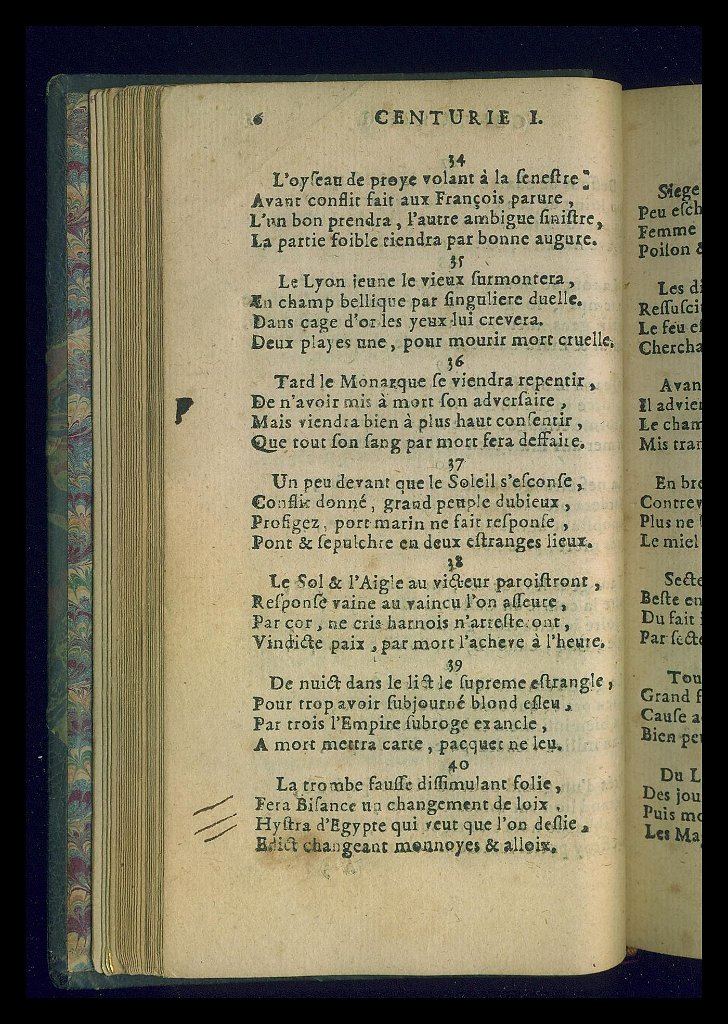 6 CENTURIE I.
34
L'oyſeau de proye volant à la feneſtre :
Avant conflit fait aux François parure ,
L'un bon prendra , l'autre ambigue ſiniſtre ,
La partie foible tiendra par bonne augure.
35
Le Lyon jeune le vieux ſurmontera ,
En champ bellique par ſinguliere duelle.
Dans cage d'or les yeux lui crevera.
Deux playes une , pour mourir mort cruelle.
36
Tard le Monarque ſe viendra repentir ,
De n'avoir mis à mort ſon adverſaire ,
Mais viendra bien à plus haut conſentir ,
Que tout ſon ſang par mort fera deffaite.
37
Un peu devant que le Soleil s'eſconſe ,
Conflit donné , grand peuple dubieux ,
Profigez , port marin ne fait reſponſe ,
Pont & ſepulchre en deux eſtranges lieux.
38
Le Sol & l'Aigle au victeur paroiſtront ,
Reſponſe vaine au vaincu l'on aſſeure ,
Par cor , ne cris harnois n'arreſteront ,
Vindicte paix , par mort l'acheve à l'heure.
39
De nuict dans le lict le ſupreme eſtrangle ,
Pour trop avoir ſubjourné blond eſleu ,
Par trois l'Empire ſubroge exancle ,
A mort mettra carte , pacquet ne leu.
40
La trombe fauſſe diſſimulant folie ,
Fera Biſance un changement de loix ,
Hyſtra d'Egypte qui veut que l'on deſlie ,
Edict changeant monnoyes & alloix.
Siege
Peu
Femme
Poiſon &
Les
Le feu
Avan
Il
Le
Mis
En
Plus ne
Le miel
Beſte en
Du fait
Par
Grand
Cauſe
Bien
Du L
Des
Puis
Les